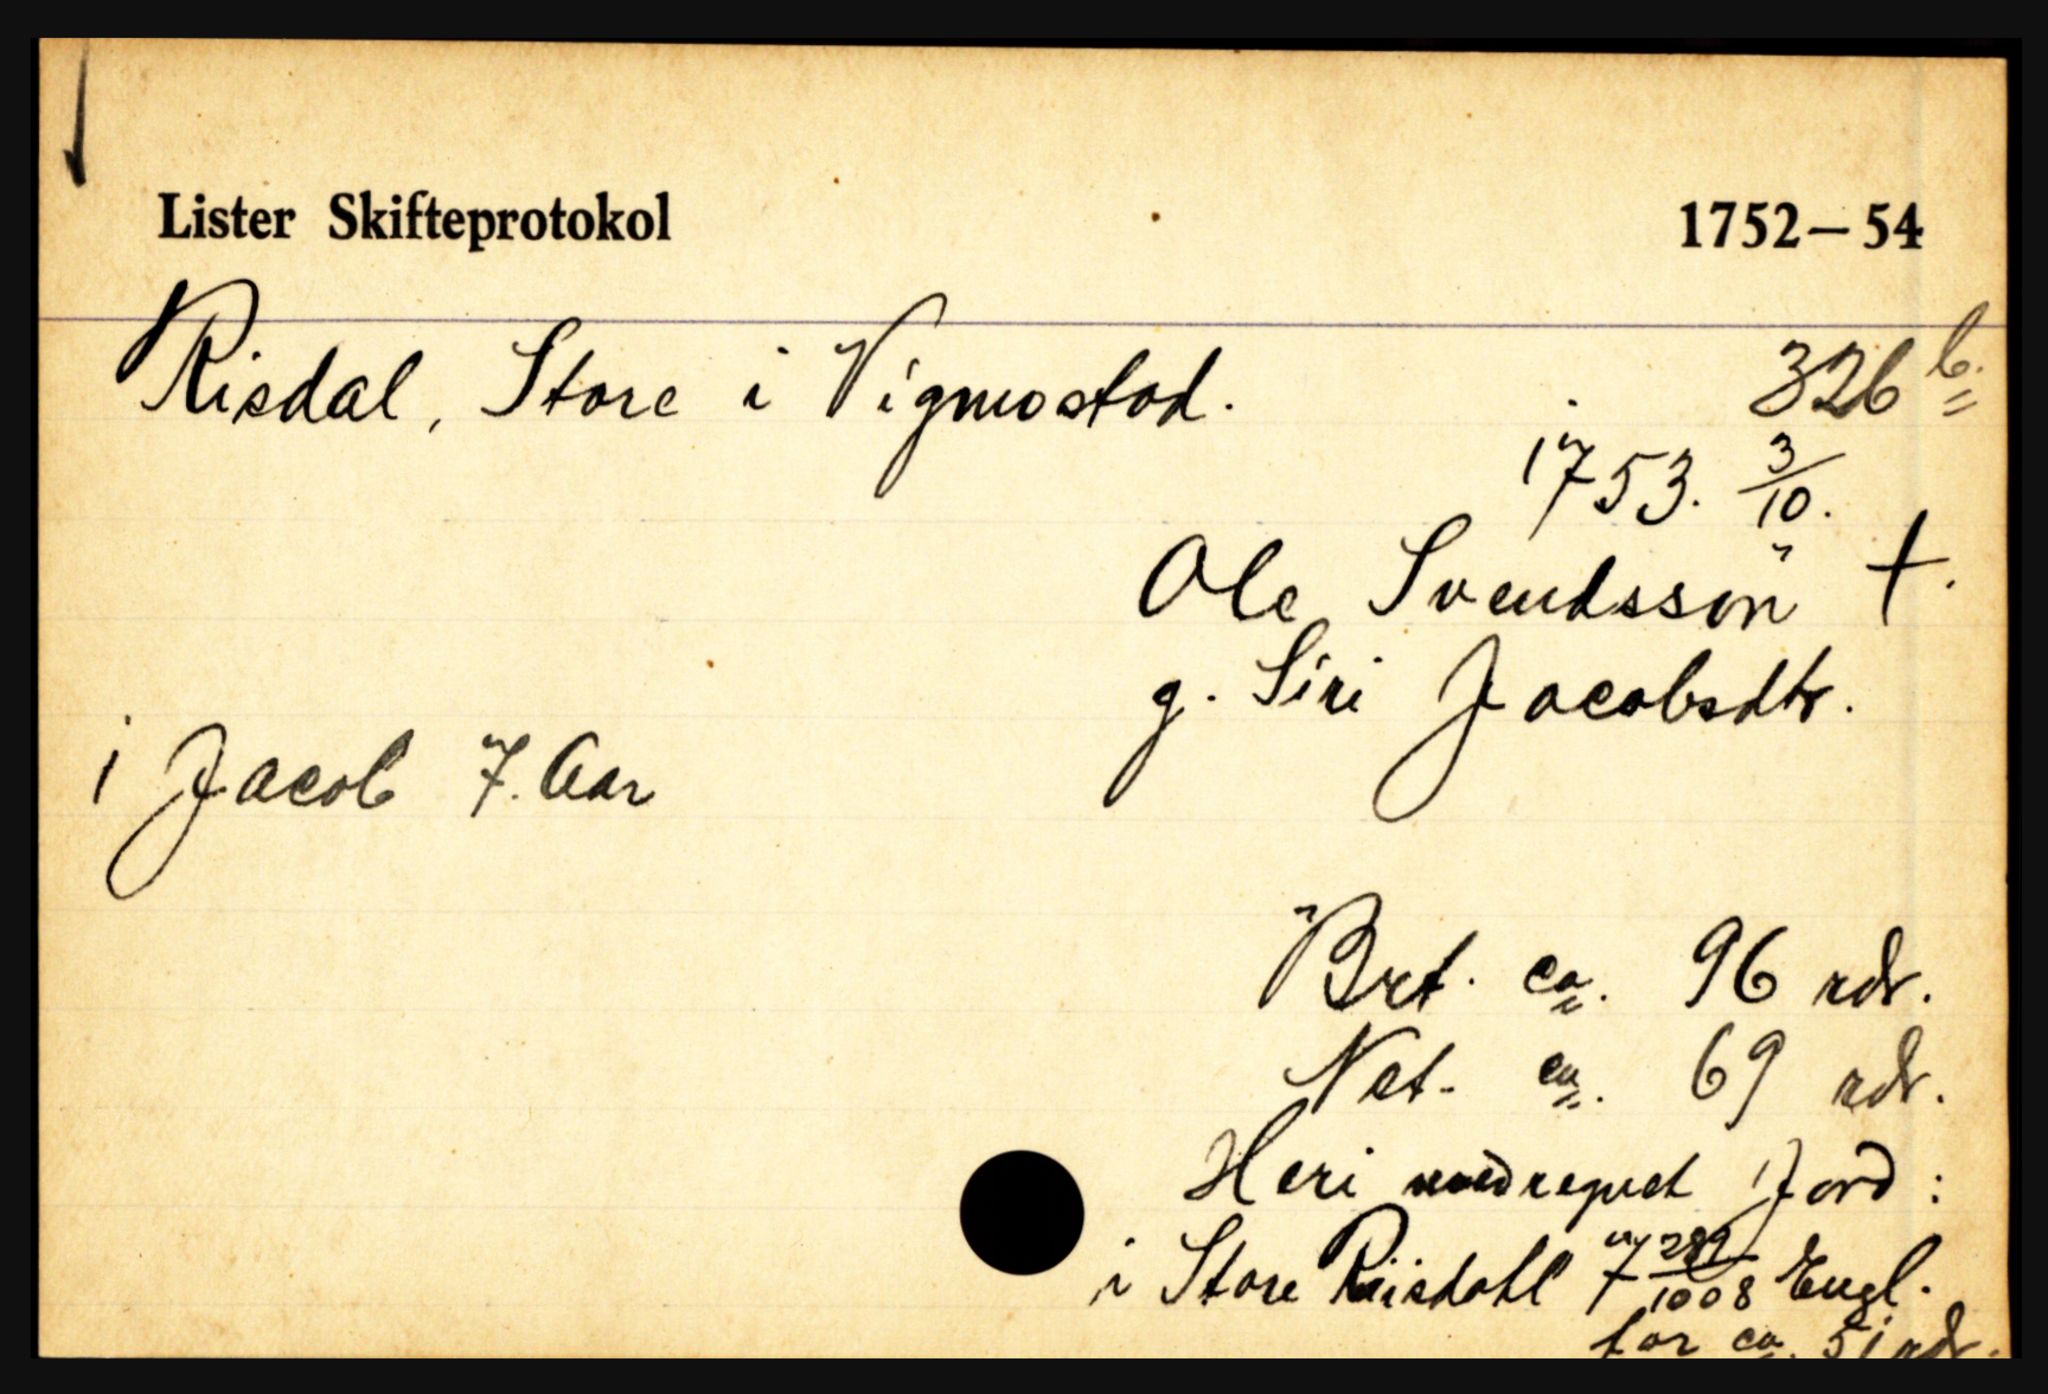 Lister Skifteprotokol 1752–54
Risdal, Store i Vigmostad. 326 b.
1753. 3/10.
Ole Svendssøn †.
g. Siri Jacobsdtr.
1 Jacob 7. Aar
Brt. ca. 96 rdr.
Net. ca. 69 rdr.
Heri medregnet Jord:
i Store Riisdahl 7 289/1008 Engl.
for ca. 51 rdr.